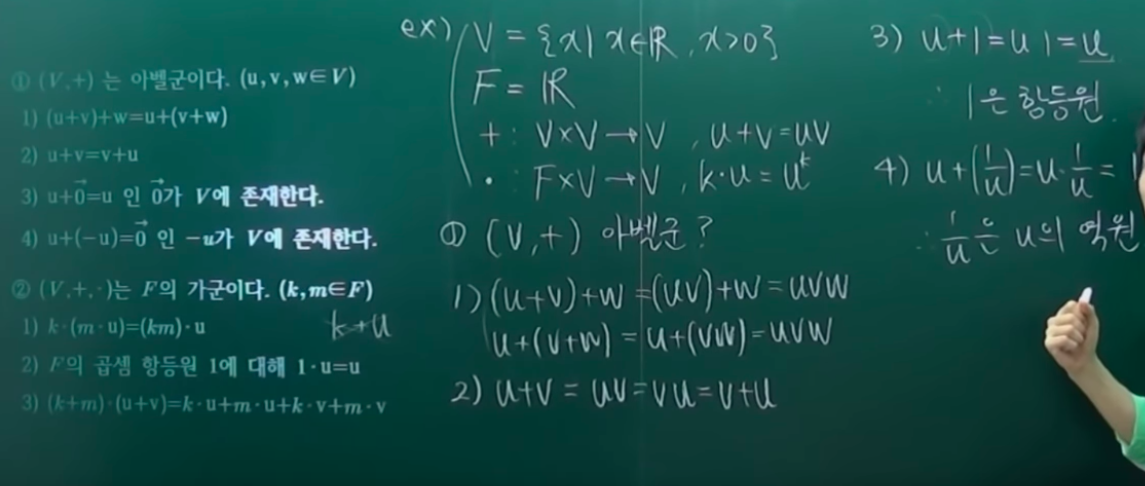 ① (V,+) 는 아벨군이다. (u,v,w∈V)
1) (u+v)+w=u+(v+w)
2) u+v=v+u
3) u+0⃗=u 인 0⃗가 V에 존재한다.
4) u+(-u)=0⃗ 인 -u가 V에 존재한다.
② (V,+,·)는 F의 가군이다. (k,m∈F)
1) k·(m·u)=(km)·u
k+u
2) F의 곱셈 항등원 1에 대해 1·u=u
3) (k+m)·(u+v)=k·u+m·u+k·v+m·v
ex) V = {x| x∈ℝ, x>0}
F = ℝ
+ : V×V→V , u+v=uv
· : F×V→V , k·u=uᵏ
① (V,+) 아벨군?
1) (u+v)+w=(uv)+w=uvw
u+(v+w)=u+(vw)=uvw
2) u+v=uv=vu=v+u
3) u+1=u1=u
∴ 1은 항등원.
4) u+(1/u)=u·1/u=
∴ 1/u은 u의 역원